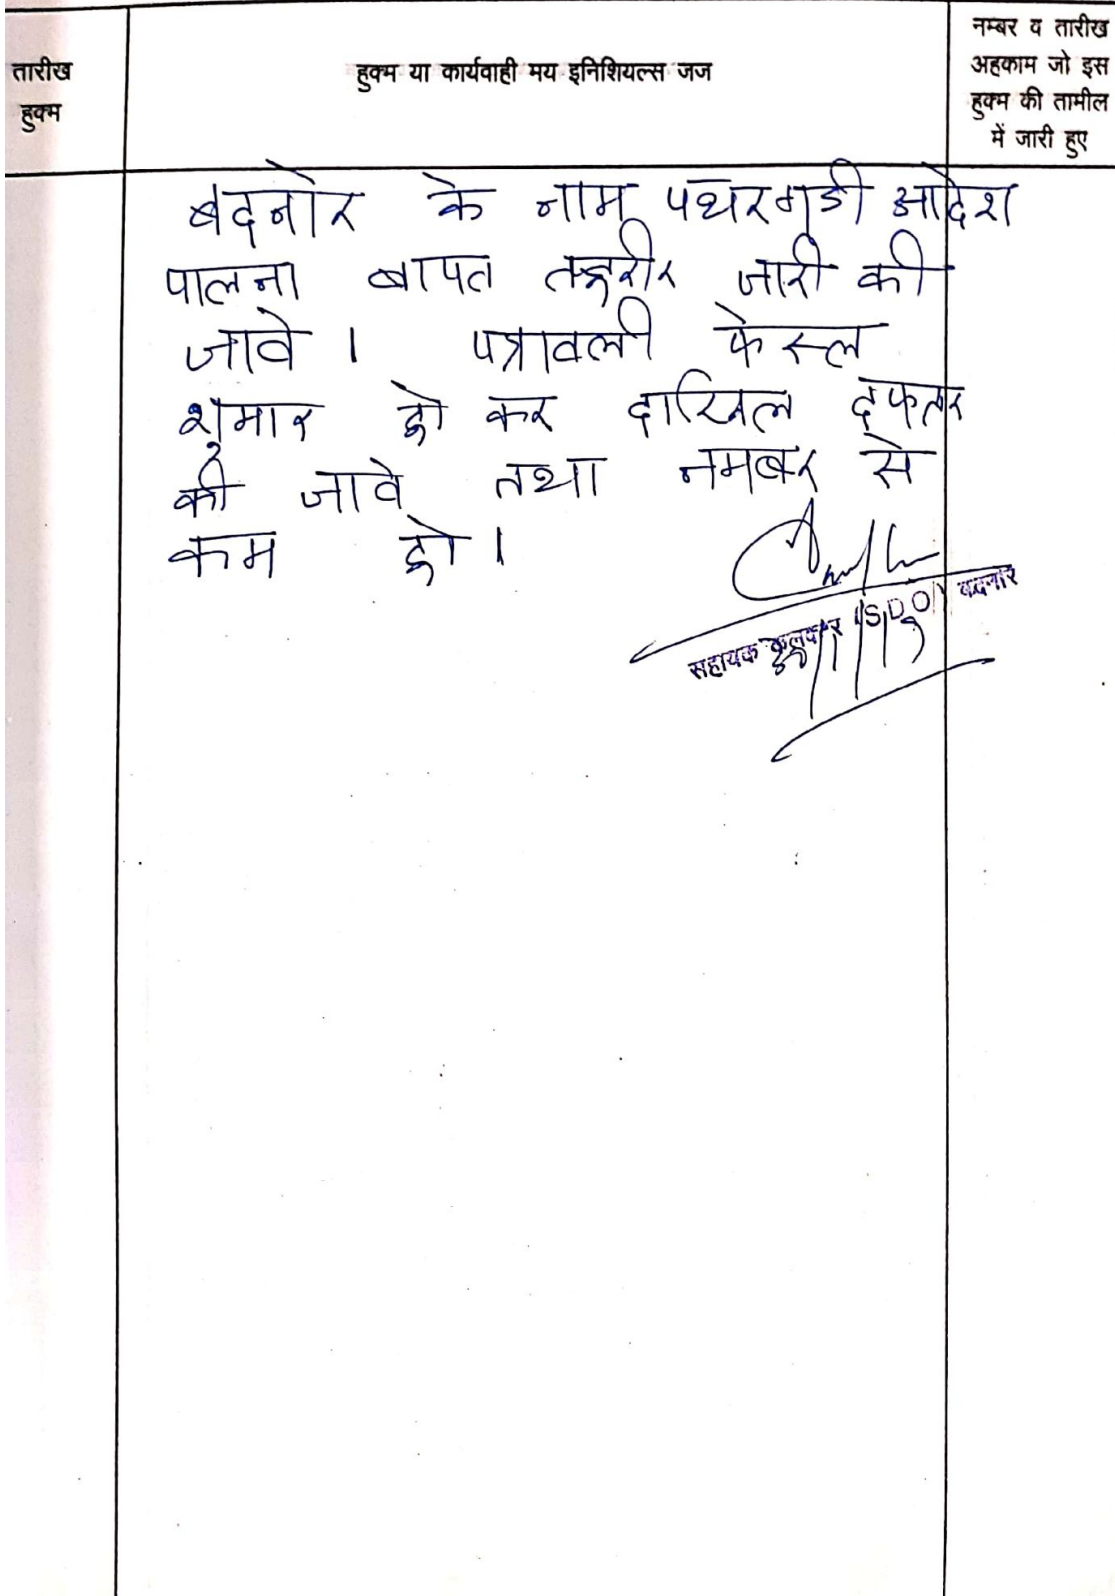 तारीख
हुक्म
हुक्म या कार्यवाही मय इनिशियल्स जज
नम्बर व तारीख
अहकाम जो इस
हुक्म की तामील
में जारी हुए
बदनोर के नाम पथरगडी आदेश
पालना बापत तहरीर जारी की
जावे । पत्रावली फेसल
शुमार हो कर दाखिल दफतर
की जावे तथा नमबर से
कम हो ।
सहायक कलक्टर (SDO) बदनोर